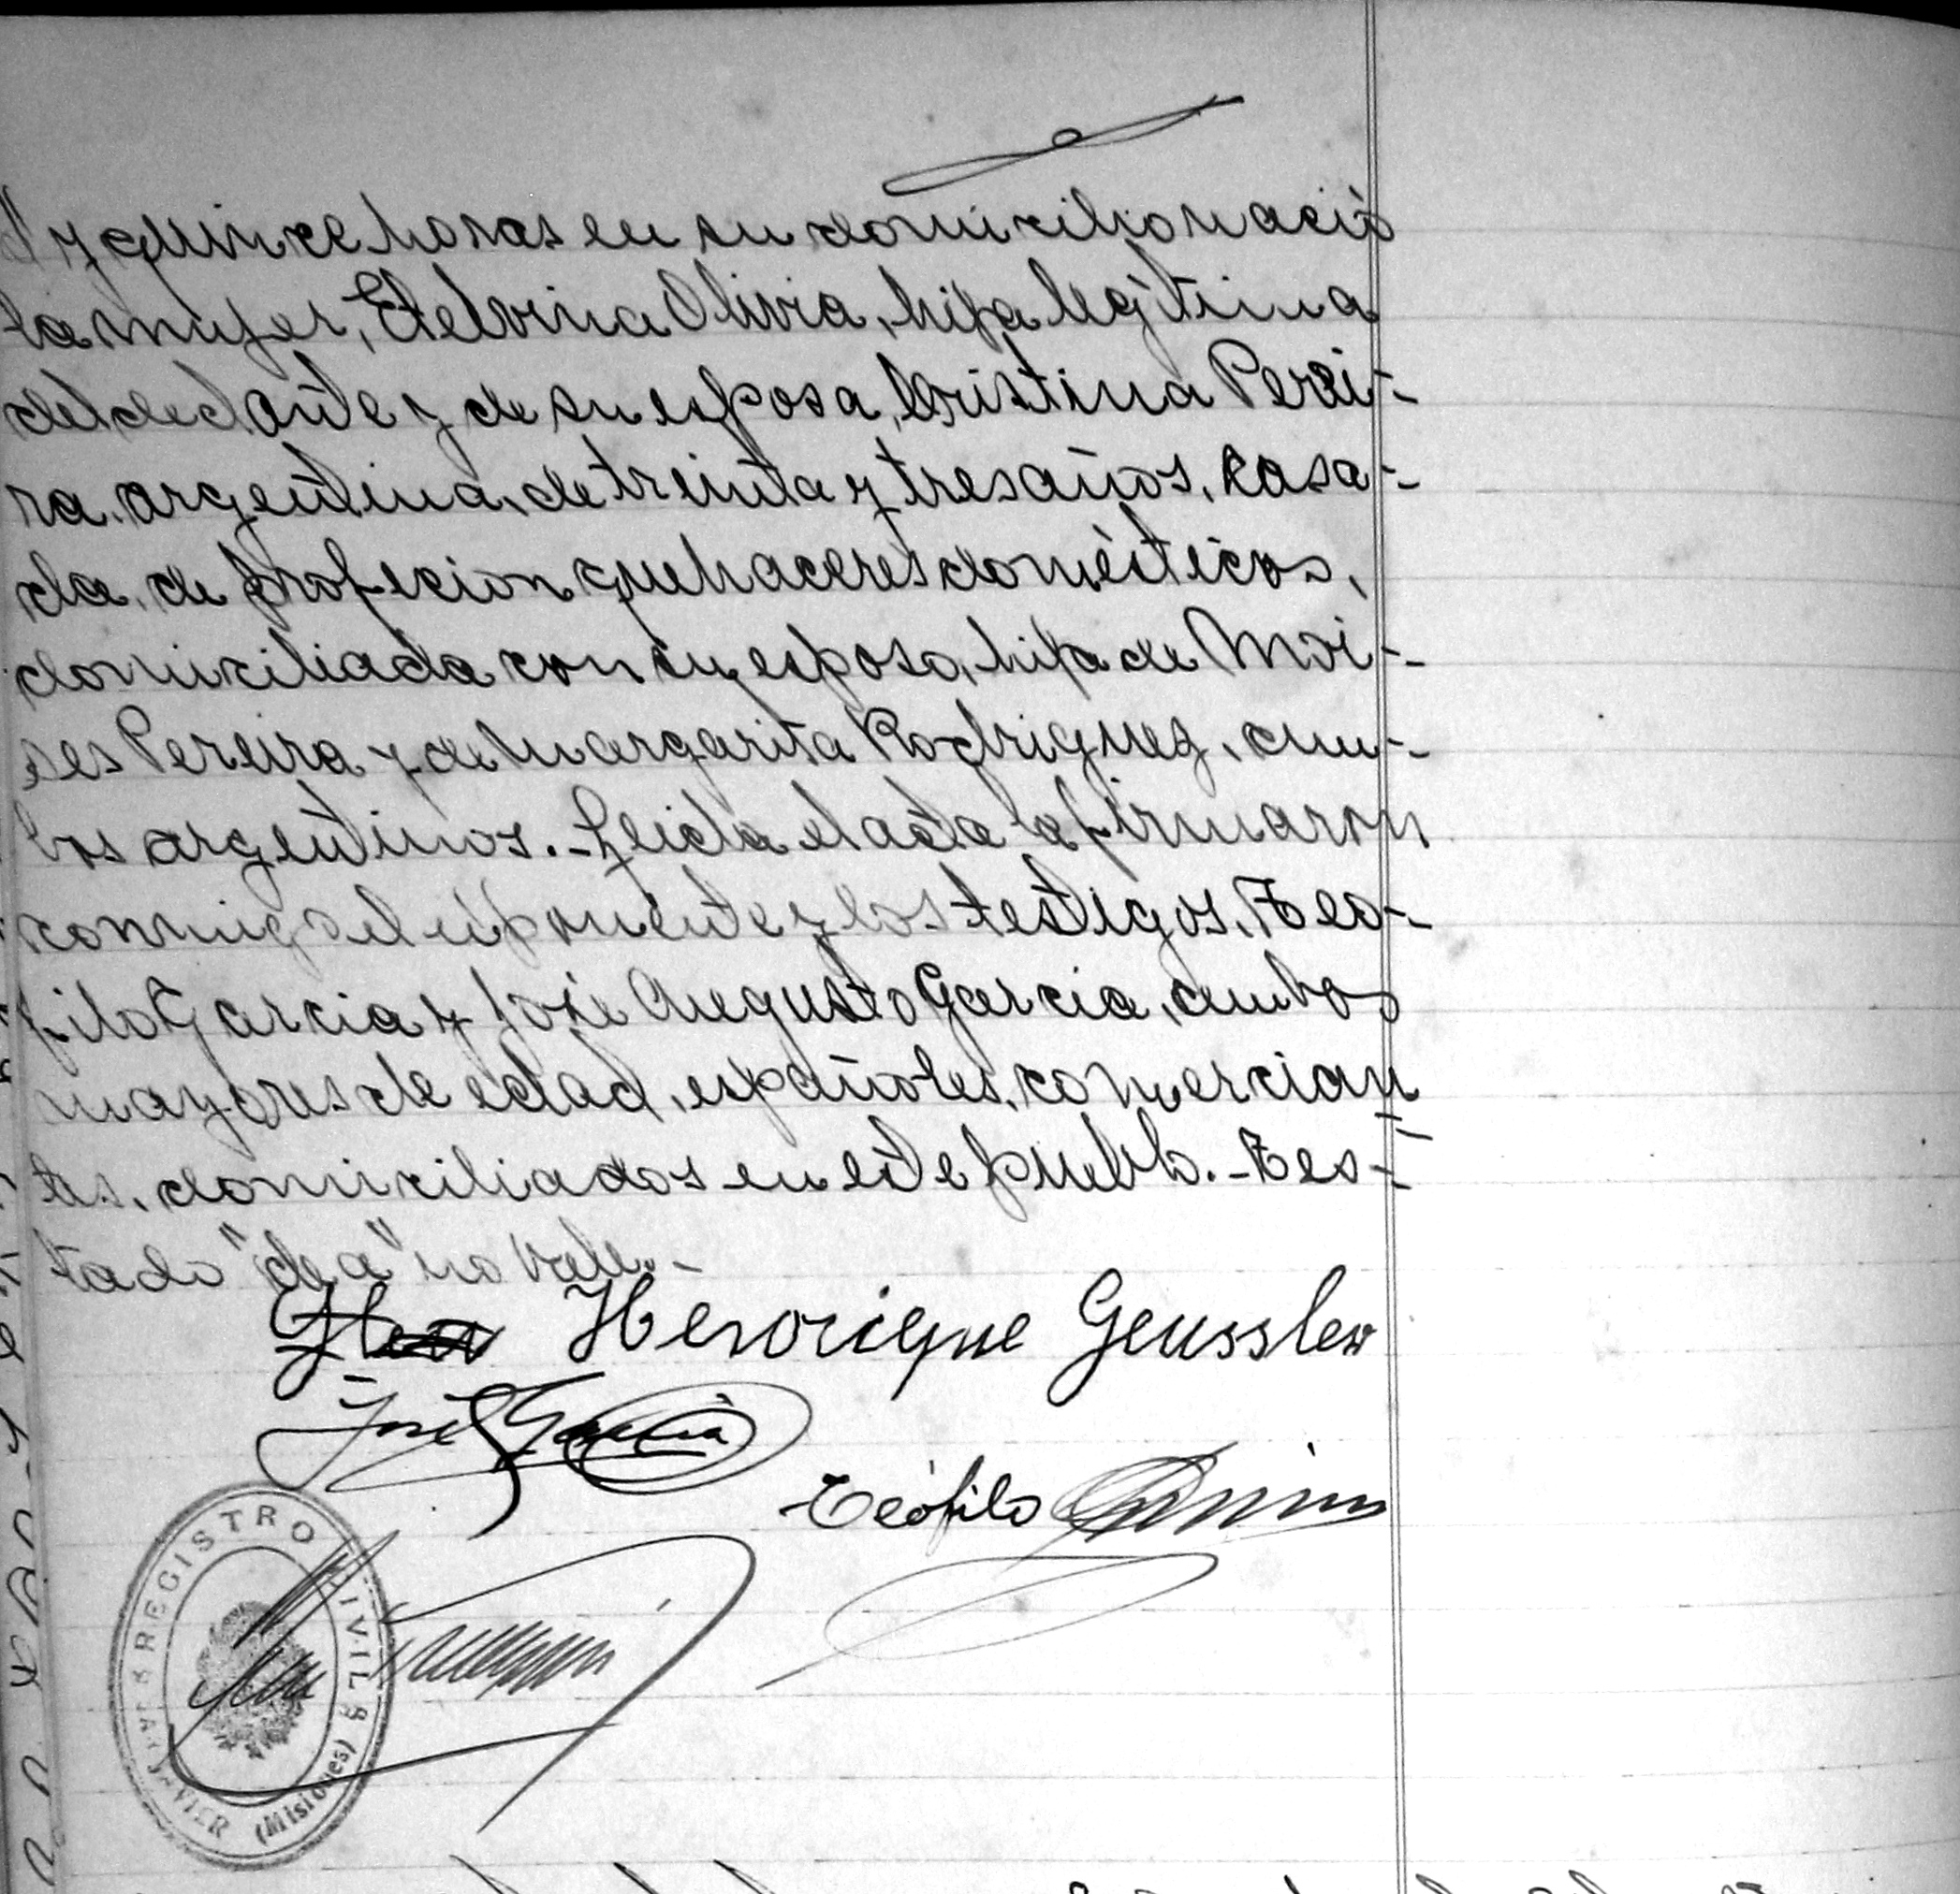 y quince horas en su domicilio nació
la mujer, Etelvina Olivia, hija legítima
del declarante y de su esposa, Cristina Perei-
ra, argentina, de treinta y tres años, casa-
da, de profecion quehaceres domésticos,
domiciliada con su esposo, hija de Moi-
ses Pereira y de Margarita Rodriguez, am-
bos argentinos.- Leida el acta la firmaron
conmigo el esponente y los testigos, Teo-
filo Garcia y José Augusto Garcia, ambos
mayores de edad, españoles, comercian
tes, domiciliados en este pueblo.- Tes-
tado "de a" no vale.-
Henorique Geussler
José Garcia
Teófilo
REGISTRO CIVIL
JAVIER (Misiones)